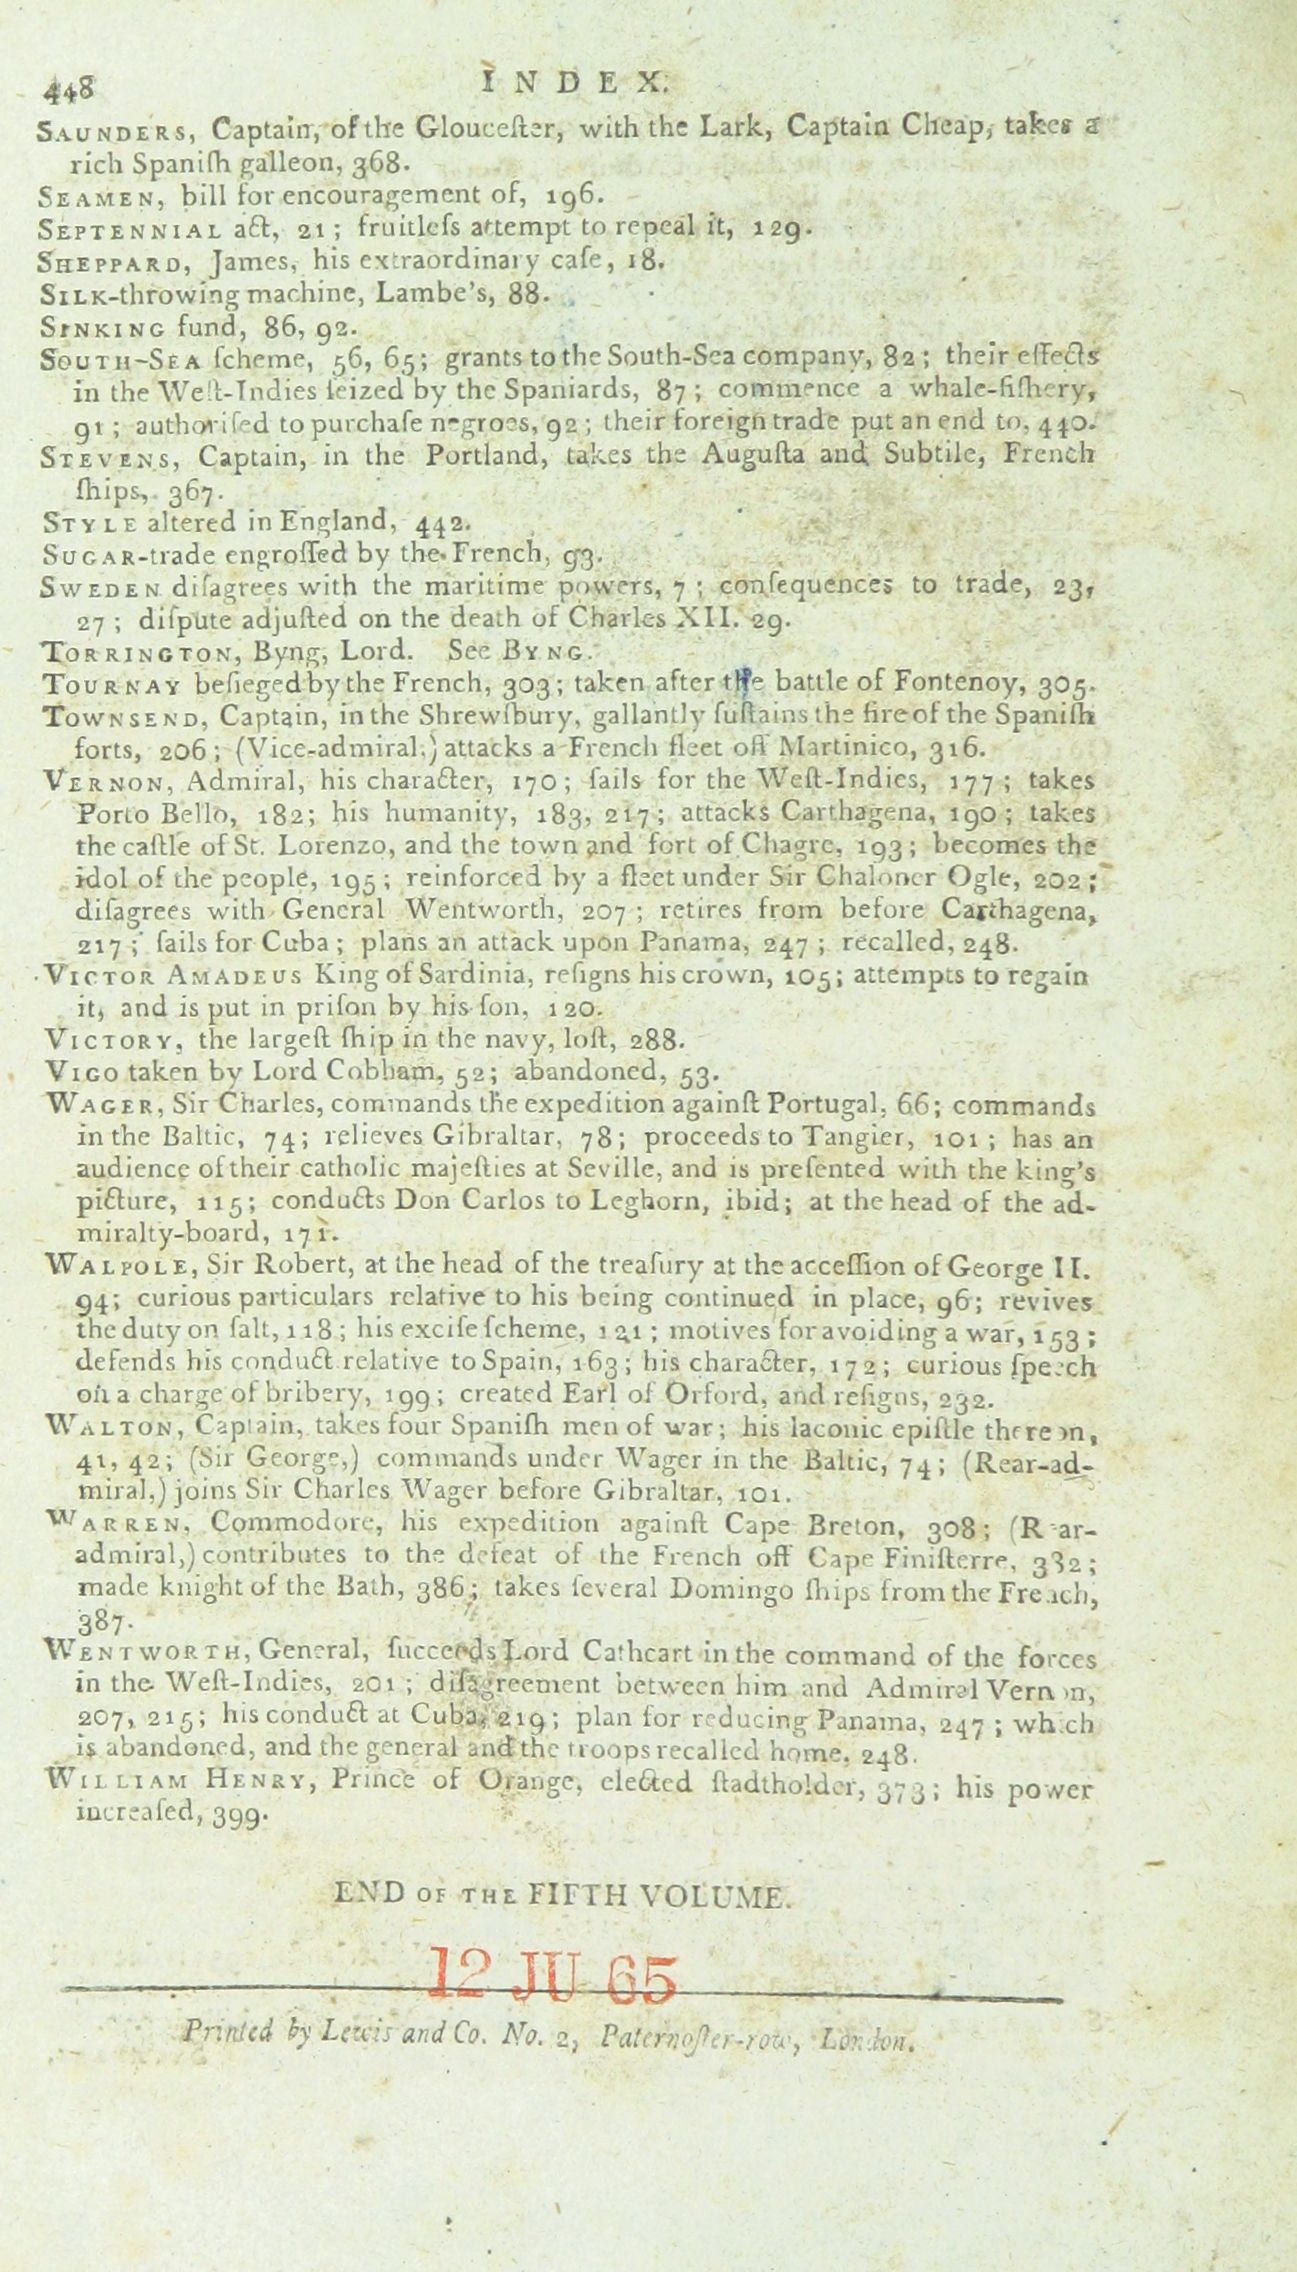 448 INDEX.
SAUNDERS, Captain, of the Glouceſter, with the Lark, Captain Cheap, takes a
rich Spaniſh galleon, 368.
SEAMEN, bill for encouragement of, 196.
SEPTENNIAL act, 21; fruitleſs attempt to repeal it, 129.
SHEPPARD, James, his extraordinary caſe, 18.
SILK-throwing machine, Lambe's, 88.
SINKING fund, 86, 92.
SOUTH-SEA ſcheme, 56, 65; grants to the South-Sea company, 82; their effects
in the Weſt-Indies ſeized by the Spaniards, 87; commence a whale-fiſhery,
91; authoriſed to purchaſe negroes, 92; their foreign trade put an end to, 440.
STEVENS, Captain, in the Portland, takes the Auguſta and Subtile, French
ſhips, 367.
STYLE altered in England, 442.
SUGAR-trade engroſſed by the French, 93.
SWEDEN diſagrees with the maritime powers, 7; conſequences to trade, 23,
27; diſpute adjuſted on the death of Charles XII. 29.
TORRINGTON, Byng, Lord. See BYNG.
TOURNAY beſieged by the French, 303; taken after the battle of Fontenoy, 305.
TOWNSEND, Captain, in the Shrewſbury, gallantly ſuſtains the fire of the Spaniſh
forts, 206; (Vice-admiral,) attacks a French fleet off Martinico, 316.
VERNON, Admiral, his character, 170; ſails for the Weſt-Indies, 177; takes
Porto Bello, 182; his humanity, 183, 217; attacks Carthagena, 190; takes
the caſtle of St. Lorenzo, and the town and fort of Chagre, 193; becomes the
idol of the people, 195; reinforced by a fleet under Sir Chaloner Ogle, 202;
diſagrees with General Wentworth, 207; retires from before Carthagena,
217; ſails for Cuba; plans an attack upon Panama, 247; recalled, 248.
VICTOR AMADEUS King of Sardinia, reſigns his crown, 105; attempts to regain
it, and is put in priſon by his ſon, 120.
VICTORY, the largeſt ſhip in the navy, loſt, 288.
VIGO taken by Lord Cobham, 52; abandoned, 53.
WAGER, Sir Charles, commands the expedition againſt Portugal, 66; commands
in the Baltic, 74; relieves Gibraltar, 78; proceeds to Tangier, 101; has an
audience of their catholic majeſties at Seville, and is preſented with the king's
picture, 115; conducts Don Carlos to Leghorn, ibid; at the head of the ad-
miralty-board, 171.
WALPOLE, Sir Robert, at the head of the treaſury at the acceſſion of George II.
94; curious particulars relative to his being continued in place, 96; revives
the duty on ſalt, 118; his exciſe ſcheme, 121; motives for avoiding a war, 153;
defends his conduct relative to Spain, 163; his character, 172; curious ſpeech
on a charge of bribery, 199; created Earl of Orford, and reſigns, 232.
WALTON, Captain, takes four Spaniſh men of war; his laconic epiſtle thereon,
41, 42; (Sir George,) commands under Wager in the Baltic, 74; (Rear-ad-
miral,) joins Sir Charles Wager before Gibraltar, 101.
WARREN, Commodore, his expedition againſt Cape Breton, 308; (Rear-
admiral,) contributes to the defeat of the French off Cape Finiſterre, 382;
made knight of the Bath, 386; takes ſeveral Domingo ſhips from the French,
387.
WENTWORTH, General, ſucceeds Lord Cathcart in the command of the forces
in the Weſt-Indies, 201; diſagreement between him and Admiral Vernon,
207, 215; his conduct at Cuba, 219; plan for reducing Panama, 247; which
is abandoned, and the general and the troops recalled home, 248.
WILLIAM HENRY, Prince of Orange, elected ſtadtholder, 373; his power
increaſed, 399.
END OF THE FIFTH VOLUME.
12 JU 65
Printed by Lewis and Co. No. 2, Paternoſter-row, London.